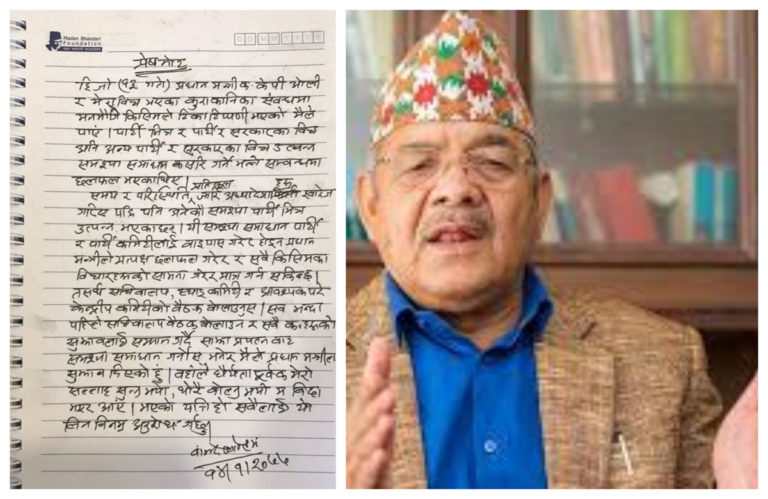 Madan Bhandari
Foundation
D D M M Y Y Y Y
प्रेस नोट
हिजो (१३ गते) प्रधान मन्त्री क. केपी ओली
र मेरो विच भएका कुराकानिका संवन्धमा
मनोगत किसिमले टिका टिप्पणी भएको मैले
पाएं । पार्टी भित्र र पार्टी र सरकारका विच
अनि अन्य पार्टी र सरकारका विच उत्पन्न
समश्या समाधान कसरि गर्ने भन्ने सम्वन्धमा
छलफल भएकाथिए ।
समय र परिस्थिति प्रतिकूल जारि अध्यादेश हरू खारेज
गरिए पछि पनि अनेकौं समश्या पार्टी भित्र
उत्पन्न भएकाछन् । यी समश्या समाधान पार्टी
र पार्टी कमिटीलाई वाइपास गरेर होइन प्रधान
मन्त्रीले प्रत्यक्ष छलफल गरेर र सवै किसिमका
विचारहरूको सामना गरेर मात्र गर्न सकिन्छ ।
तसर्थ सचिवालय, स्थाइ कमिटी र आवश्यक परे
केन्द्रीय कमिटीको वैठक वोलाउनुस् । सव भन्दा
पहिले सचिवालय वैठक वोलाउन र सवै क. हरूको
सुझावलाई सम्मान गर्दै साझा प्रयत्न वाट
समश्या समाधान गर्नोस् भनेर मैले प्रधान मन्त्रीलाई
सुझाव दिएको हुं । वहांले धैर्यता पूर्वक मेरो
सल्लाह सुन्नु भयो, थोरै वोल्नु भयो म विदा
भएर आएं । भएको यत्ति हो सवैलाई
विनम्र अनुरोध गर्छु ।
वामदेव गौतम
१४/१/२०७७